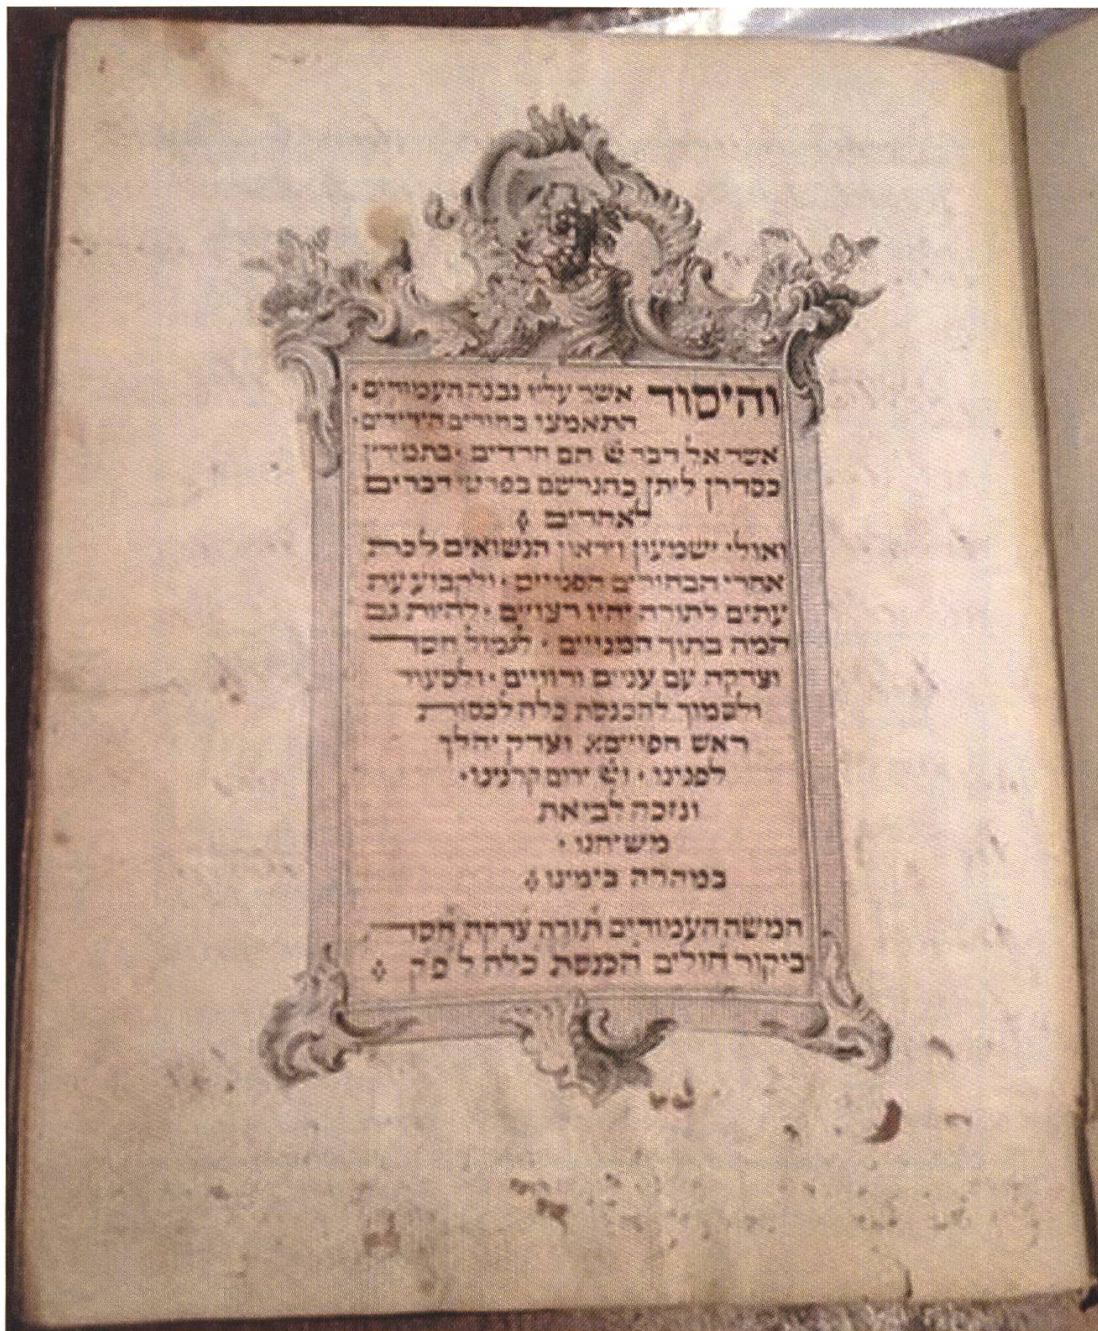 והיסוד אשר עליו נבנה העמודים ·
התאמצו בחורים הידידים ·
אשר אל דבר ה' הם חרדים · בתמידין
כסדרן ליתן כהנרשם בפרטי דברים
לאחדים
ואולי ישמעון ויראון הנשואים ללכת
אחרי הבחורים הפנויים · ולקבוע עת
עתים לתורה יהיו רצויים · להיות גם
המה בתוך המנויים · לגמול חסד
וצדקה עם עניים ורוויים · ולסעוד
ולסמוך להכנסת כלה לכסות
ראש וצדק יהלך
לפנינו · וה' ירום קרנינו ·
ונזכה לביאת
משיחנו ·
במהרה בימינו
חמשה העמודים תורה צדקה חסד
ביקור חולים הכנסת כלה ל פ ק